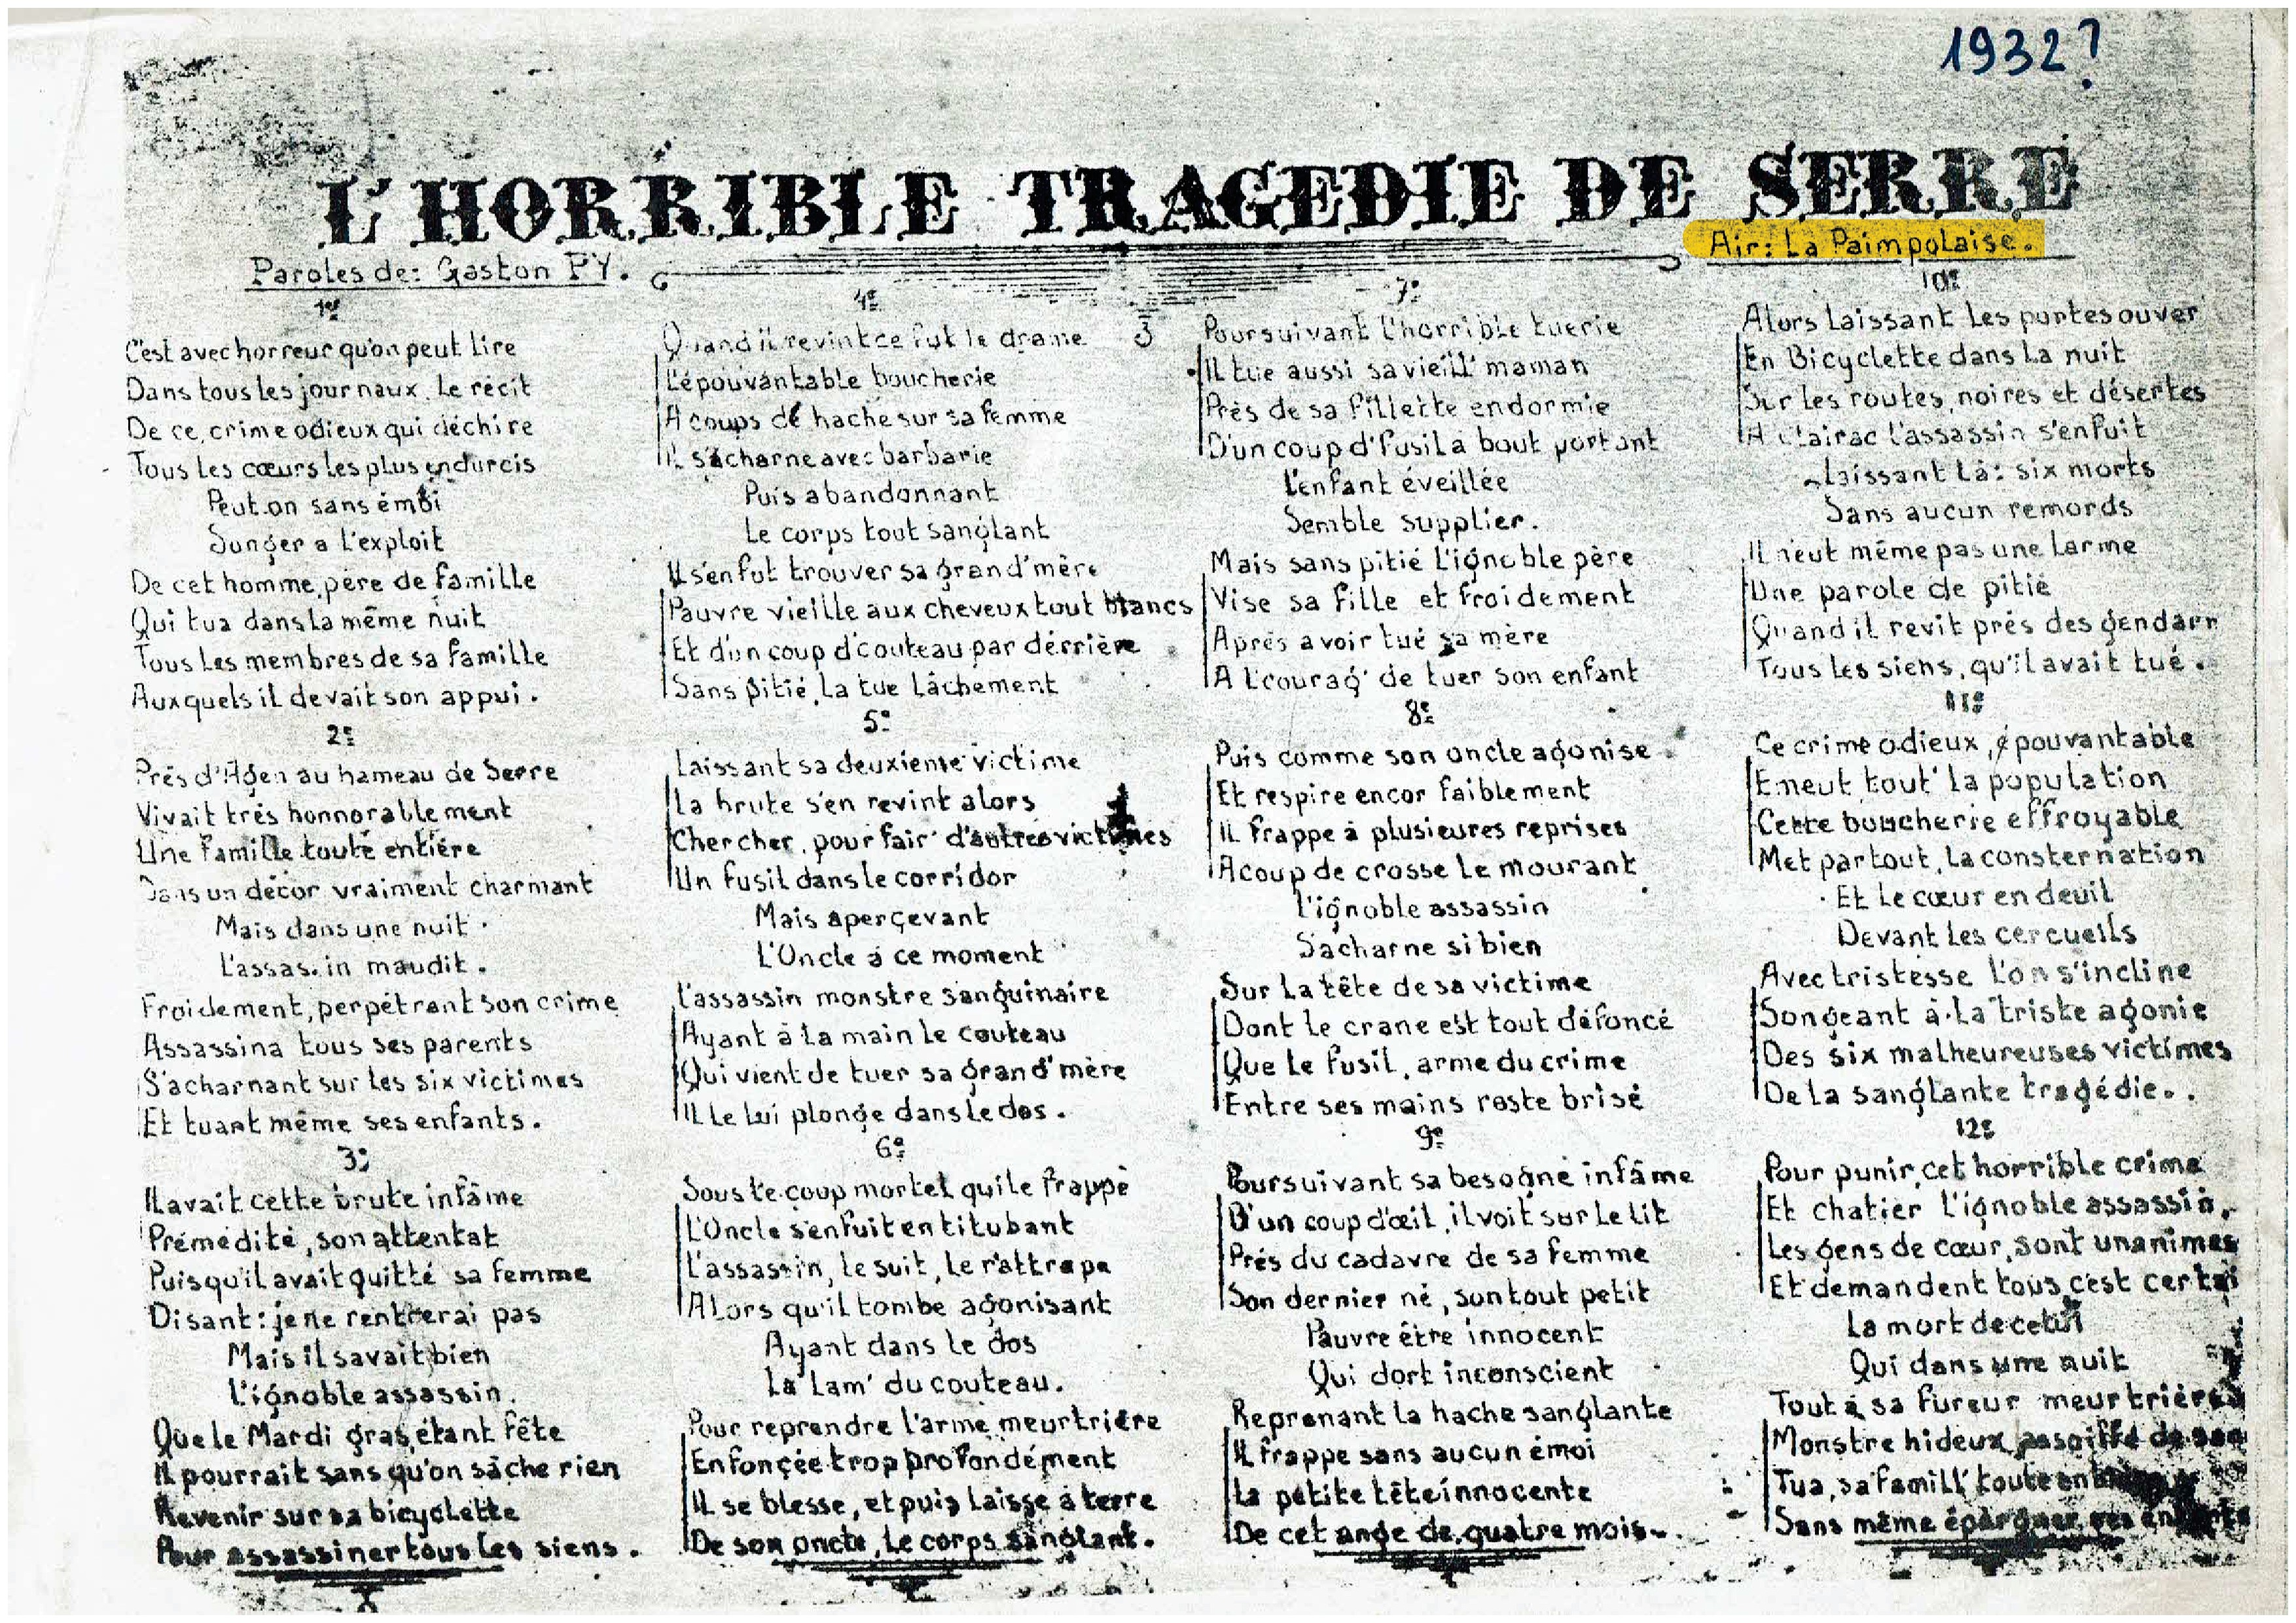 1932?
L'HORRIBLE TRAGEDIE DE SERRE
Air: La Paimpolaise.
Paroles de: Gaston PY.
1er
C'est avec horreur qu'on peut lire
Dans tous les journaux, le récit
De ce, crime odieux qui déchire
Tous les cœurs les plus endurcis
Peut-on sans émoi
Songer a l'exploit
De cet homme, père de famille
Qui tua dans la même nuit
Tous les membres de sa famille
Auxquels il devait son appui.
2e
Près d'Agen au hameau de Serre
Vivait très honnorablement
Une famille toute entière
Dans un décor vraiment charmant
Mais dans une nuit.
L'assassin maudit.
Froidement, perpétrant son crime
Assassina tous ses parents
S'acharnant sur les six victimes
Et tuant même ses enfants.
3e
Il avait cette brute infâme
Prémédité, son attentat
Puisqu'il avait quitté sa femme
Disant: je ne rentrerai pas
Mais il savait bien
L'ignoble assassin.
Que le Mardi gras, étant fête
Il pourrait sans qu'on sâche rien
Revenir sur sa bicyclette
Pour assassiner tous les siens.
4e
Quand il revint ce fut le drame
L'épouvantable boucherie
A coups de hache sur sa femme
Il s'acharne avec barbarie
Puis abandonnant
Le corps tout sanglant
Il s'en fut trouver sa grand'mère
Pauvre vieille aux cheveux tout blancs
Et d'un coup d'couteau par dérrière
Sans pitié, la tue lâchement
5e
Laissant sa deuxième victime
La brute s'en revint alors
Chercher, pour fair' d'autres victimes
Un fusil dans le corridor
Mais aperçevant
L'Oncle à ce moment
L'assassin monstre sanguinaire
Ayant à la main le couteau
Qui vient de tuer sa grand'mère
Il le lui plonge dans le dos.
6e
Sous le coup mortel qui le frappe
L'Oncle s'enfuit en titubant
L'assassin, le suit, le rattrape
Alors qu'il tombe agonisant
Ayant dans le dos
La lam' du couteau.
Pour reprendre l'arme meurtrière
Enfonçée trop profondément
Il se blesse, et puis laisse à terre
De son oncle, le corps sanglant.
7e
Poursuivant l'horrible tuerie
Il tue aussi sa vieill' maman
Près de sa fillette endormie
D'un coup d'fusil a bout portant
L'enfant éveillée
Semble supplier.
Mais sans pitié l'ignoble père
Vise sa fille et froidement
Après avoir tué sa mère
A l'courag' de tuer son enfant
8e
Puis comme son oncle agonise
Et respire encor faiblement
Il frappe à plusieures reprises
A coup de crosse le mourant
L'ignoble assassin
S'acharne si bien
Sur la tête de sa victime
Dont le crane est tout défoncé
Que le fusil, arme du crime
Entre ses mains reste brisé
9e
Poursuivant sa besogne infâme
D'un coup d'œil, il voit sur le lit
Près du cadavre de sa femme
Son dernier né, son tout petit
Pauvre être innocent
Qui dort inconscient
Reprenant la hache sanglante
Il frappe sans aucun émoi
La petite tête innocente
De cet ange de quatre mois.
10e
Alors laissant les portes ouver
En Bicyclette dans la nuit
Sur les routes, noires et désertes
A Clairac l'assassin s'enfuit
Laissant là: six morts
Sans aucun remords
Il n'eut même pas une larme
Une parole de pitié
Quand il revit près des gendarm
Tous les siens, qu'il avait tué.
11e
Ce crime odieux, épouvantable
Emeut tout' la population
Cette boucherie effroyable
Met partout, la consternation
Et le cœur en deuil
Devant les cercueils
Avec tristesse l'on s'incline
Songeant à la triste agonie
Des six malheureuses victimes
De la sanglante tragédie.
12e
Pour punir, cet horrible crime
Et chatier l'ignoble assassin,
Les gens de cœur, sont unanimes
Et demandent tous, c'est certai
La mort de celui
Qui dans une nuit
Tout à sa fureur meurtrière
Monstre hideux, assoiffé de
Tua, sa famill' toute
Sans même épargner ses enfants